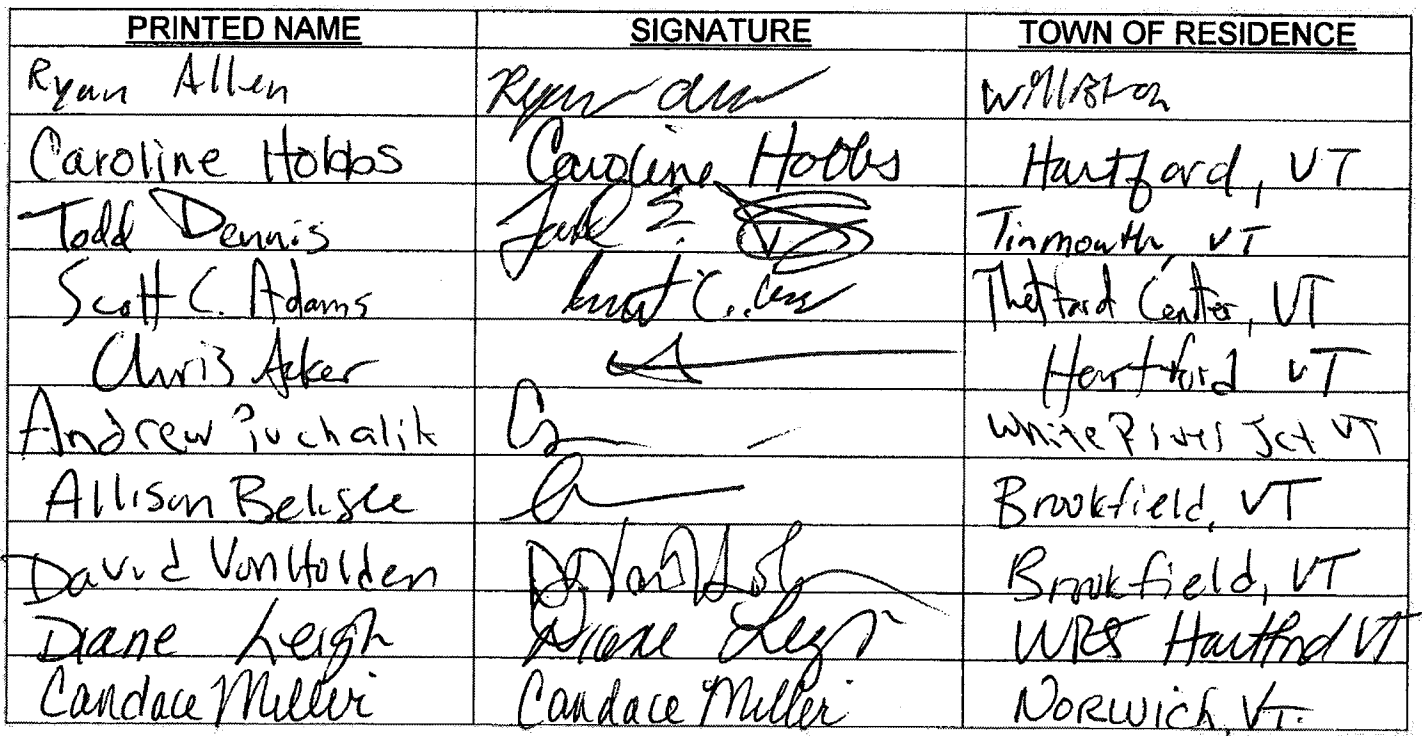 PRINTED NAME SIGNATURE TOWN OF RESIDENCE
Ryan Allen Ryan Williston
Caroline Hobbs Caroline Hobbs Hartford, VT
Todd Dennis Tinmouth, VT
Scott C. Adams Thetford Center, VT
Chris Acker Hartford VT
Andrew Puchalik White River Jct VT
Allison Belisle Brookfield, VT
David VonHolden Brookfield, VT
Diane Leigh Diane Leigh Hartford VT
Candace Miller Candace Miller Norwich, VT.